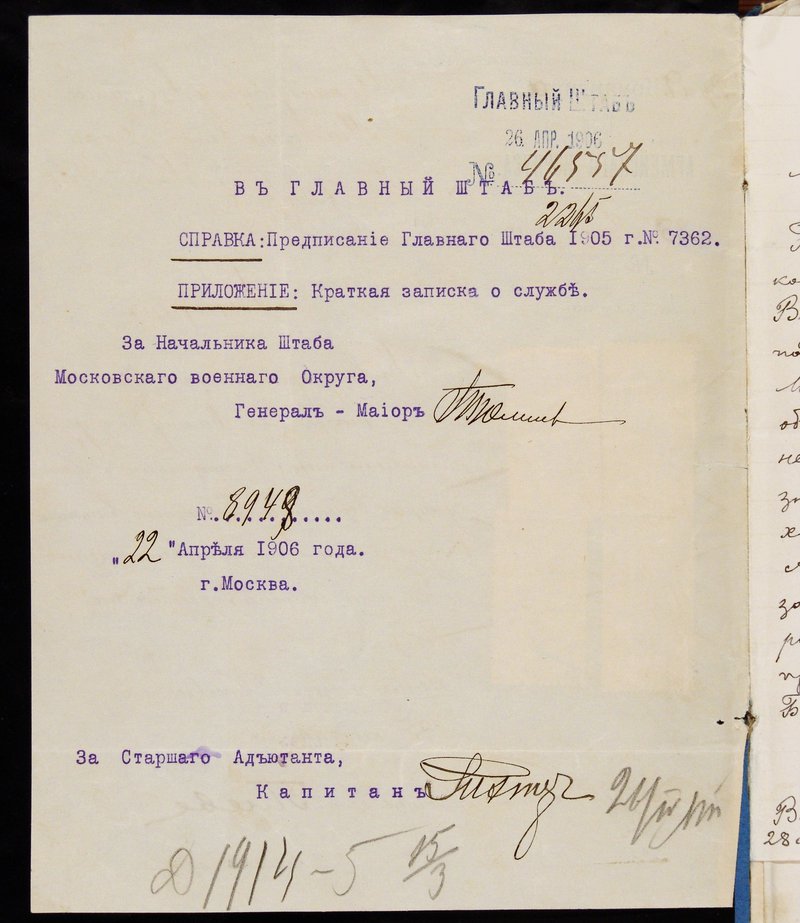 ГЛАВНЫЙ ШТАБЪ
26 АПР. 1906
№ 46557
ВЪ ГЛАВНЫЙ ШТАБЪ.
СПРАВКА: Предписаніе Главнаго Штаба 1905 г.№ 7362.
ПРИЛОЖЕНІЕ: Краткая записка о службѣ.
За Начальника Штаба
Московскаго военнаго Округа,
Генералъ - Маіоръ
№.8949.....
"22"Апрѣля 1906 года.
г.Москва.
За Старшаго Адъютанта,
Капитанъ
1914-5 15/3